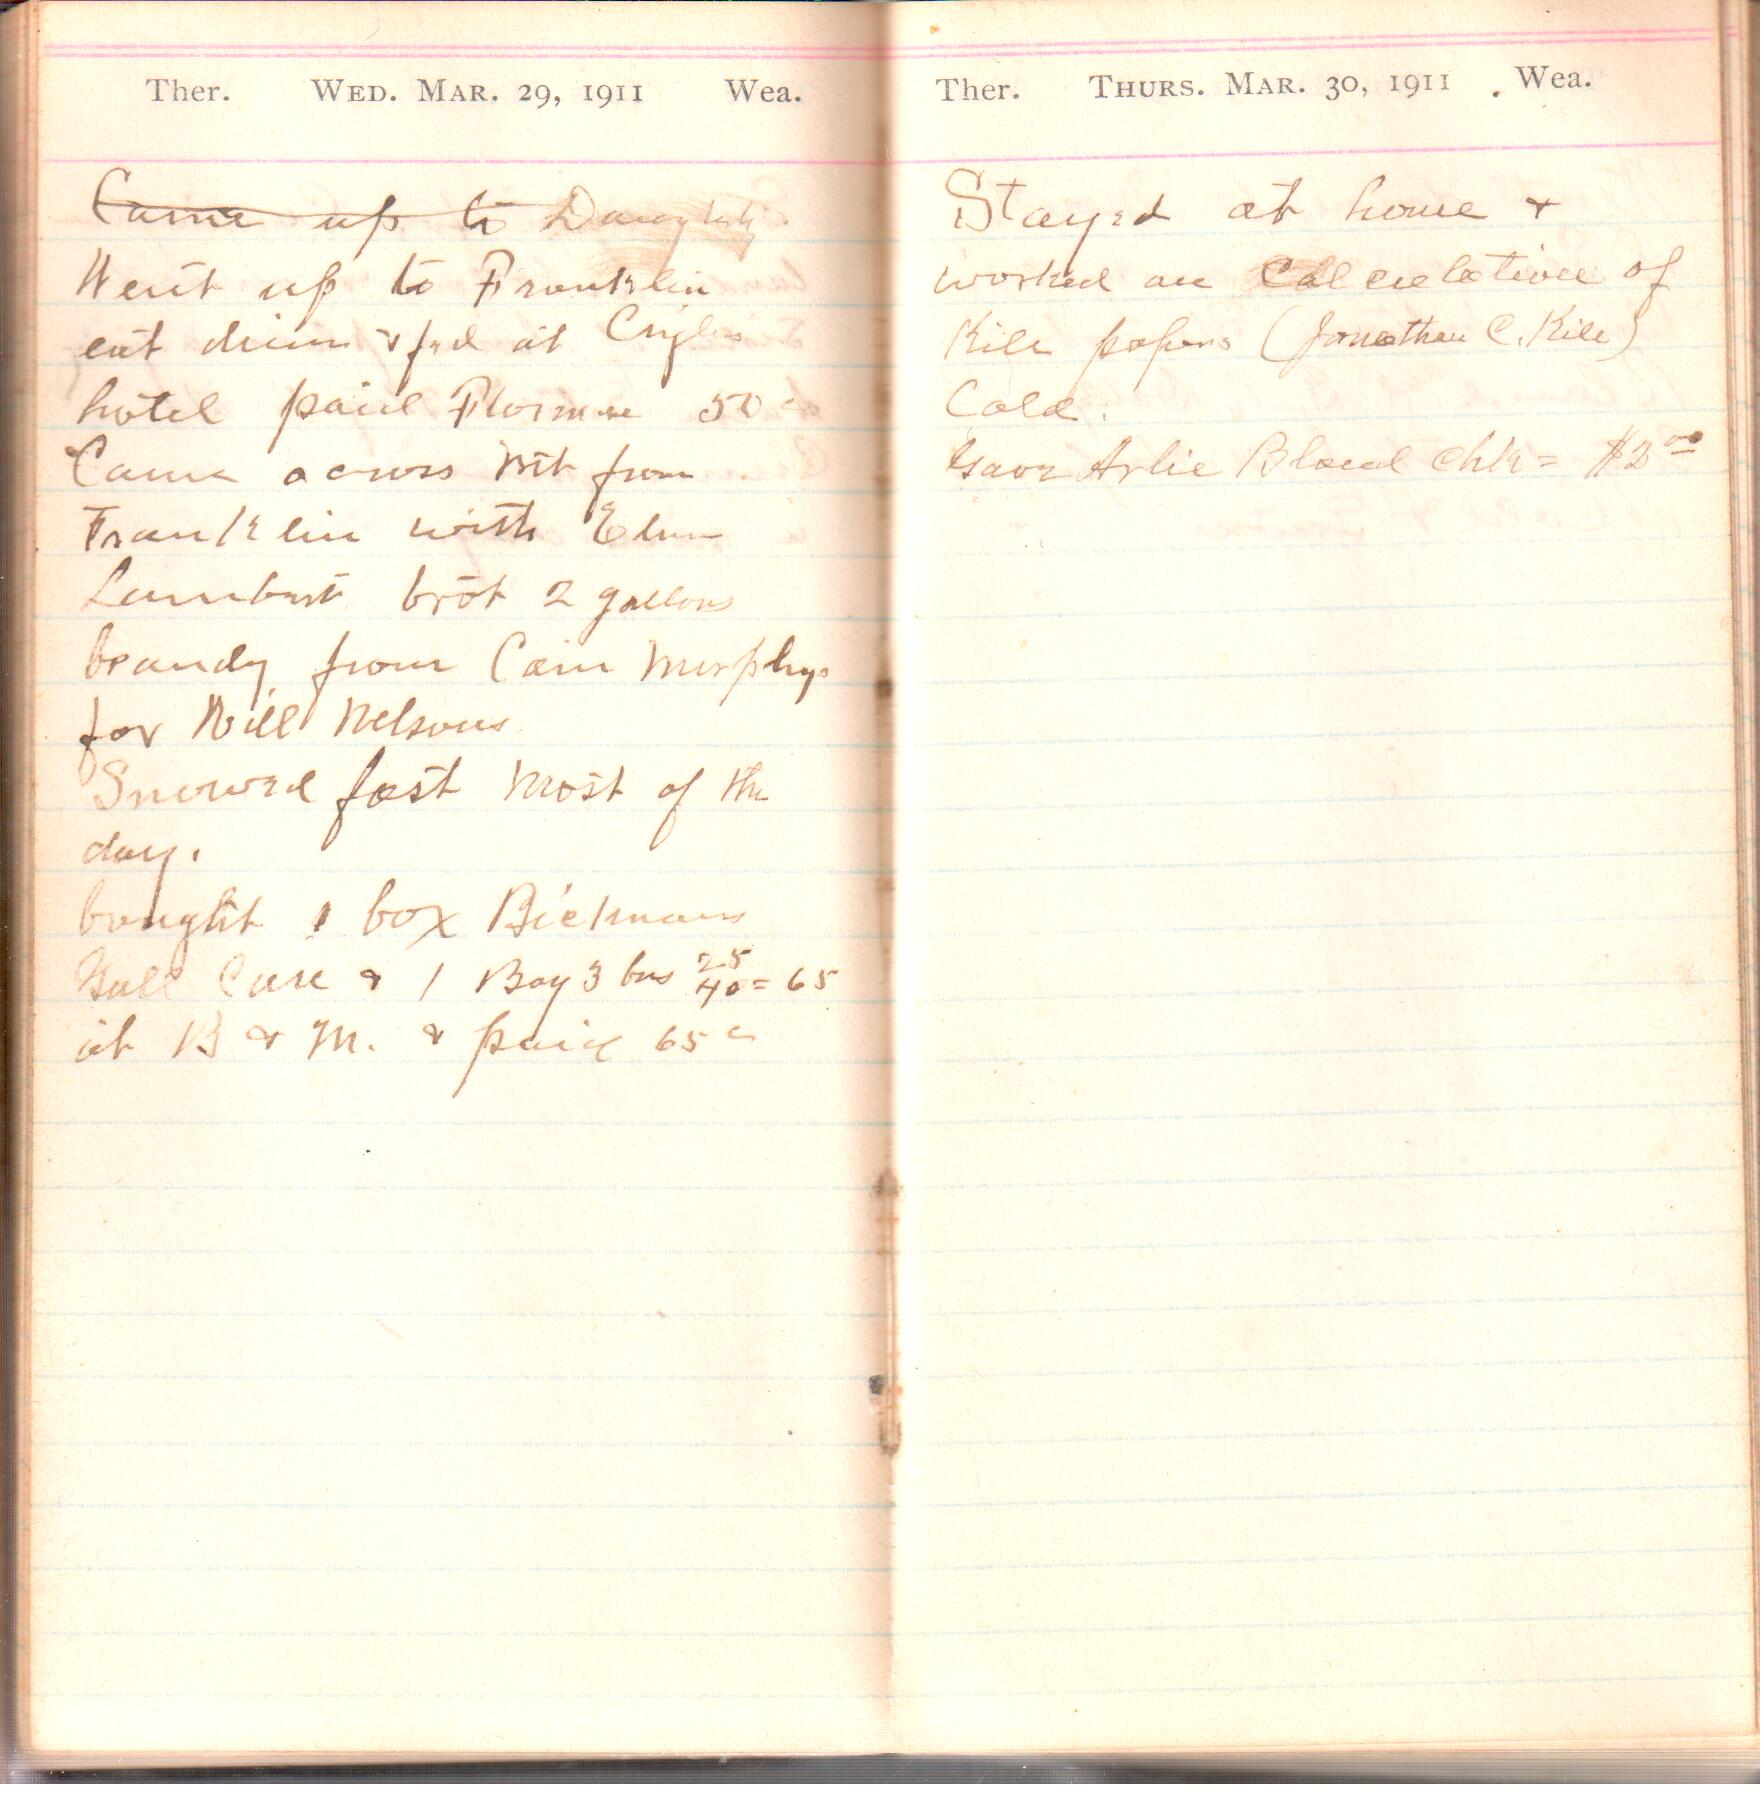 Ther. WED. MAR. 29, 1911 Wea.
Came up to
Went up to Franklin
eat dinn & fed at
hotel paid 50 c
Came across Mt from
Franklin with
Lambert brot 2 gallons
brandy from Cam Murphys
for Will Nelsons
Snowed fast most of the
day.
bought 1 box Bickmans
Gall Cure & 1 25
40 = 65
at B & M. & paid 65 c
Ther. THURS. MAR. 30, 1911 Wea.
Stayed at home &
worked on Calculation of
Kile papers (Jonathan C. Kile)
Cold.
Gave Arlie Bland Chk =